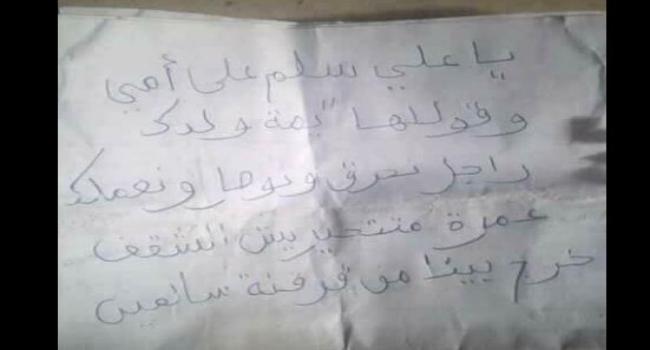 يا علي سلم على أمي
و قوللها "يمة ولدك
راجل نحرق ونوصل و نعملك
عمرة متتحيريش الشقف
خرج بينا من قرقنة سالمين